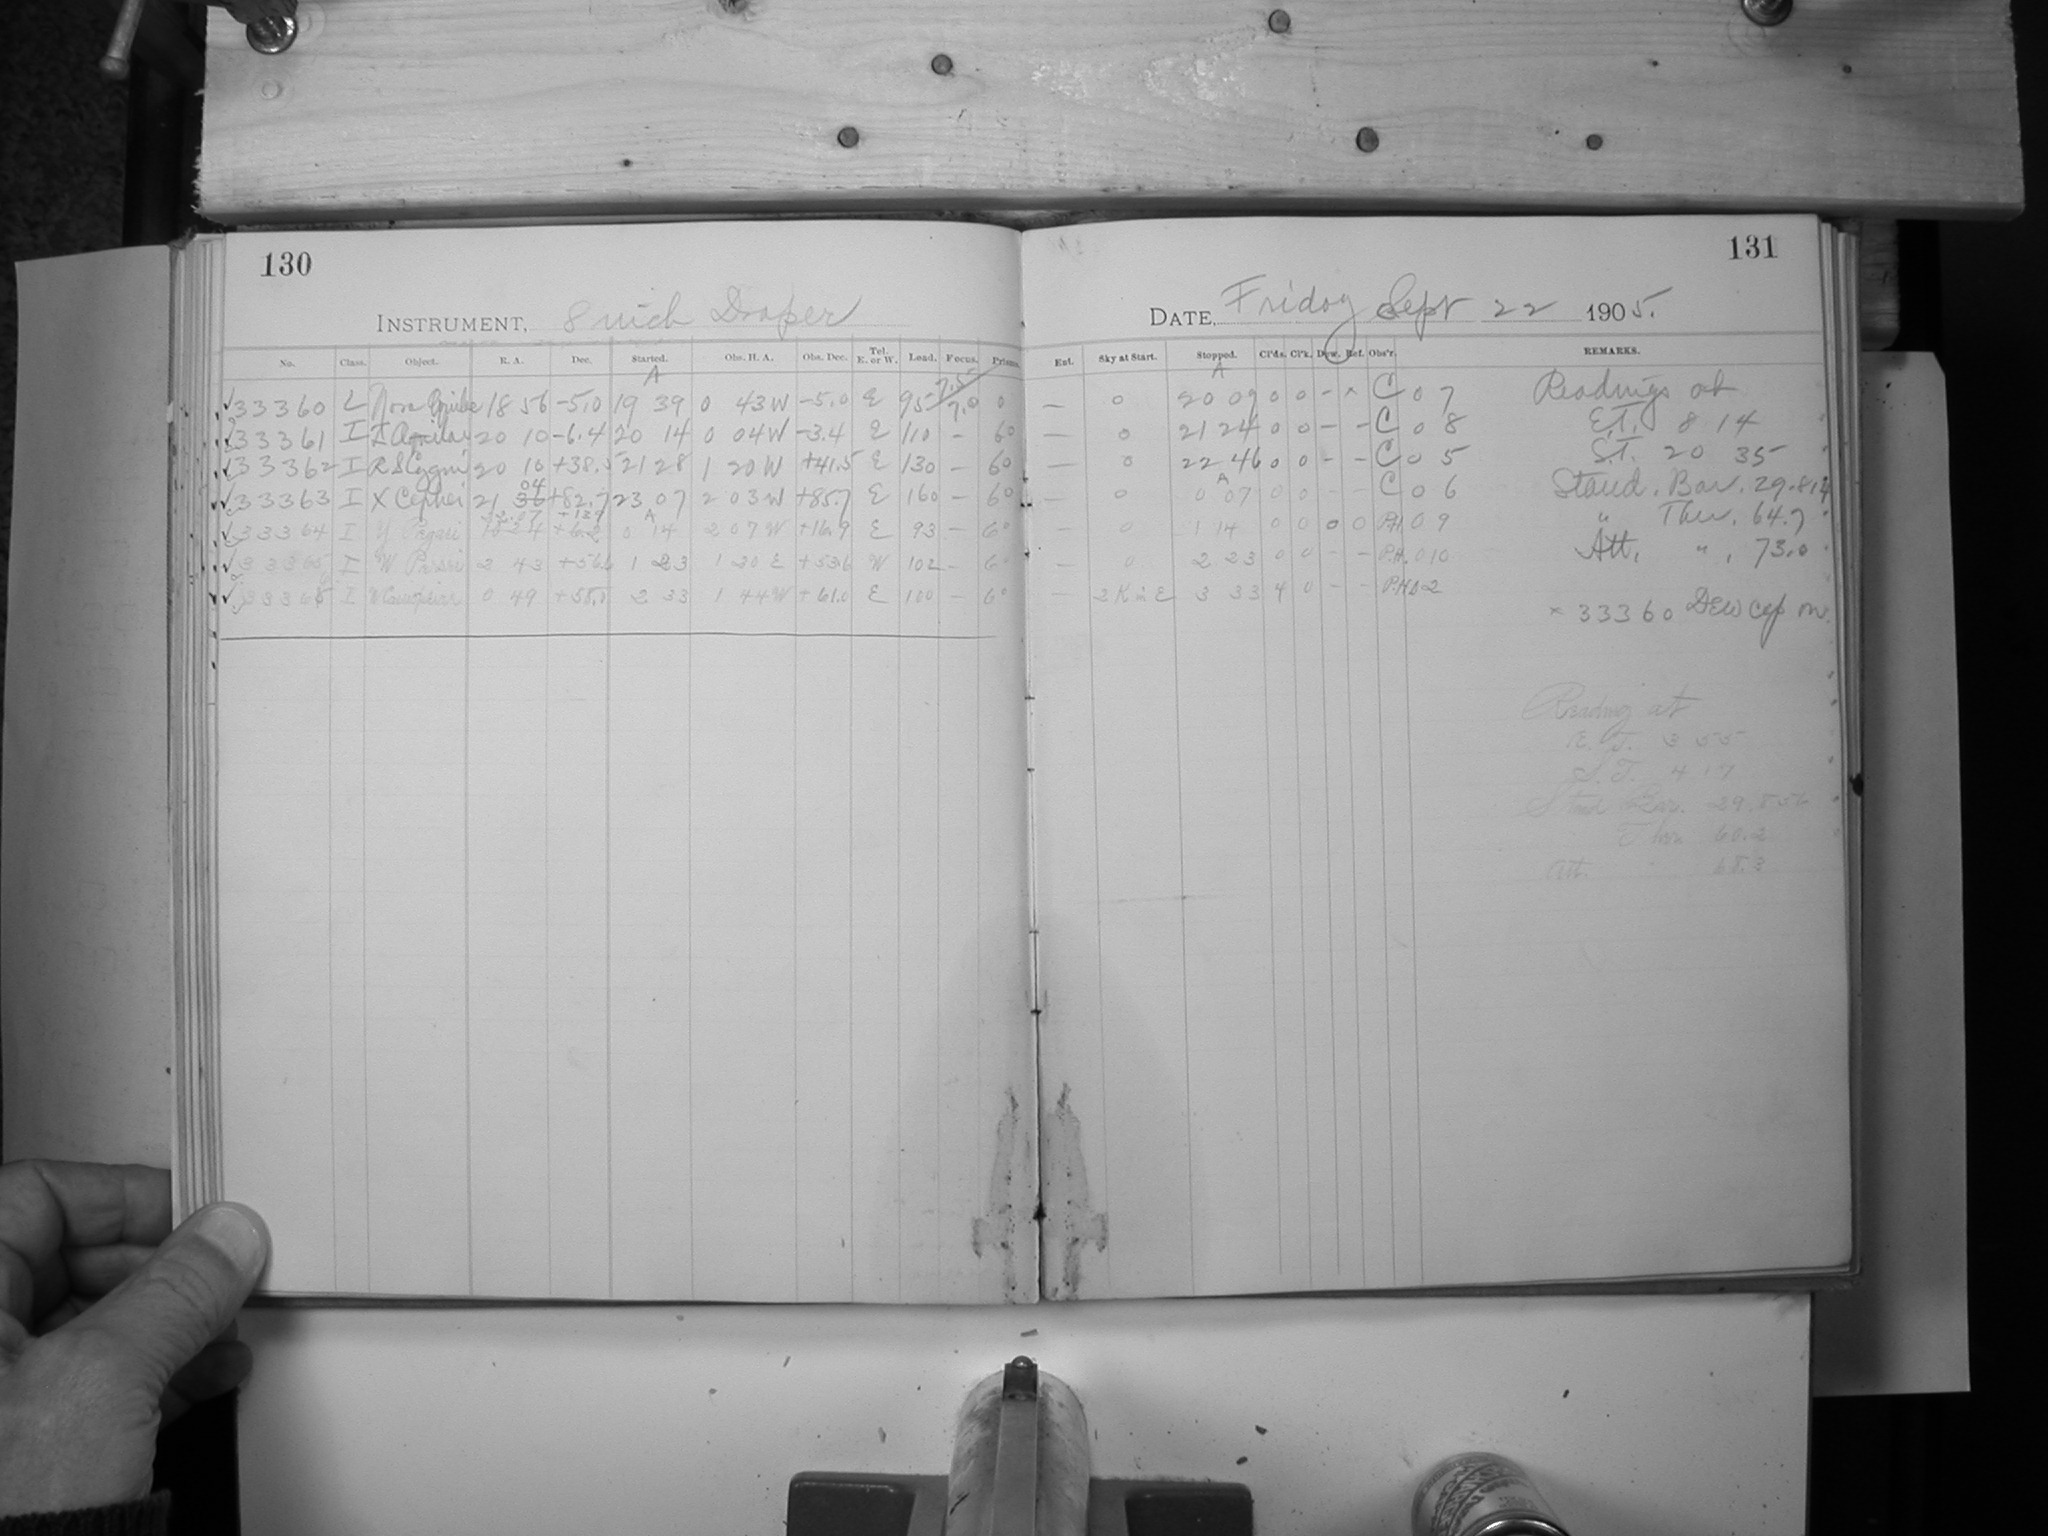 130
INSTRUMENT, 8 inch Draper
No. Class. Object. R. A. Dec. Started. Obs. H. A. Obs. Dec. Tel. E. or W. Lead. Focus. Prisms.
A
✓33360 L Nova Aquilae 18 56 -5.0 19 39 0 43W -5.0 E 95 7.5 7.0 0
✓33361 I Z Aquilae 20 10 -6.4 20 14 0 04W -3.4 E 110 - 6°
✓33362 I RS Cygni 20 10 +38.5 21 28 1 20W +41.5 E 130 - 6°
✓33363 I X Cephei 21 36 04 +82.7 23 07 2 03W +85.7 E 160 - 6°
✓33364 I Y Pegasi +6.2 A 0 14 2 07W +16.9 E 93 - 6°
✓33365 I W Persei 2 43 +56.6 1 23 1 20 E +53.6 W 102 - 6°
✓33366 I W Cassiopeiae 0 49 +58.0 2 33 1 44W +61.0 E 100 - 6°
131
DATE, Friday Sept 22 1905.
Ent. Sky at Start. Stopped. Cl'ds. Cl'k. Dew. Ref. Obs'r. REMARKS.
A
— 0 20 09 0 0 - × C 0 7
— 0 21 24 0 0 - - C 0 8
— 0 22 46 0 0 - - C 0 5
A
— 0 0 07 0 0 - - C 0 6
— 0 1 14 0 0 0 0 P.H. 0 9
— 0 2 23 0 0 - - P.H. 0 10
— 2 K in E 3 33 4 0 - - P.H. 0 2
Readings at
E.T. 8 14
S.T. 20 35
Stand. Bar. 29.814
" Ther. 64.7
Att. " , 73.0
× 33360 Dew cap on.
Reading at
E. T. 3 55
S. T. 4 17
Stand Bar. 29.856
Ther 60.2
Att. 68.3